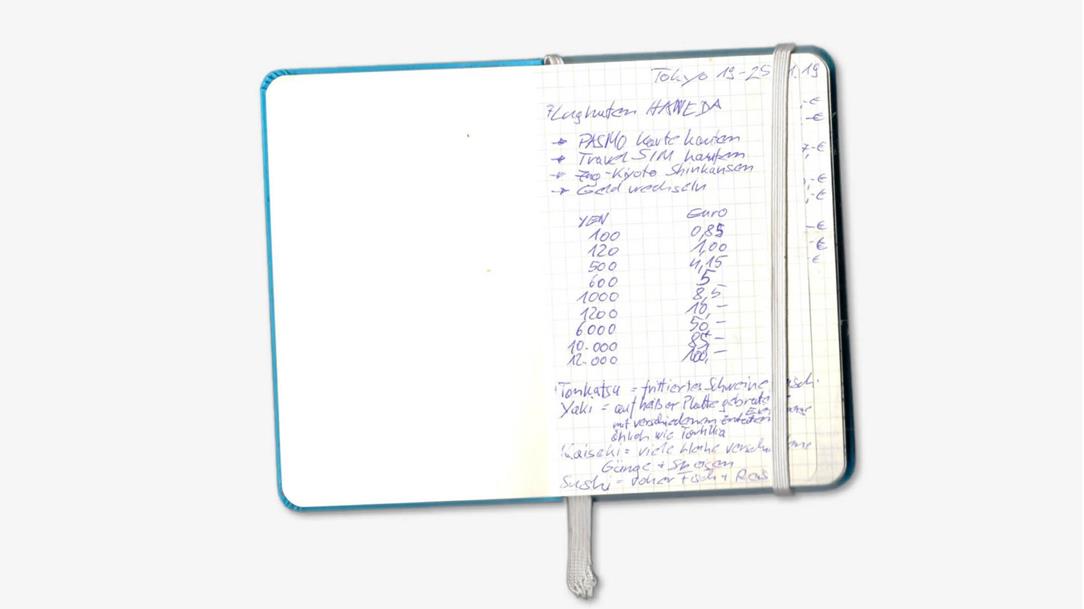 Tokyo 19-25 1.19
Flughafen HANEDA
→ PASMO Karte kaufen
→ Travel SIM kaufen
→ Zug-Kiyoto Shinkansen
→ Geld wechseln
YEN Euro
100 0,85
120 1,00
500 4,15
600 5
1000 8,5
1200 10,-
6.000 50,-
10.000 85,-
12.000 100,-
Tonkatsu = frittiertes Schweine
Yaki = auf heißer Platte gebraten
mit verschiedenen Zutaten
ähnlich wie Tortilla
Kaiseki = viele kleine
Gänge + Speisen
Sushi = roher Fisch + Reis